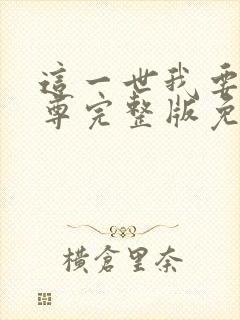 這一世我要
尊完整版免
橫倉里奈